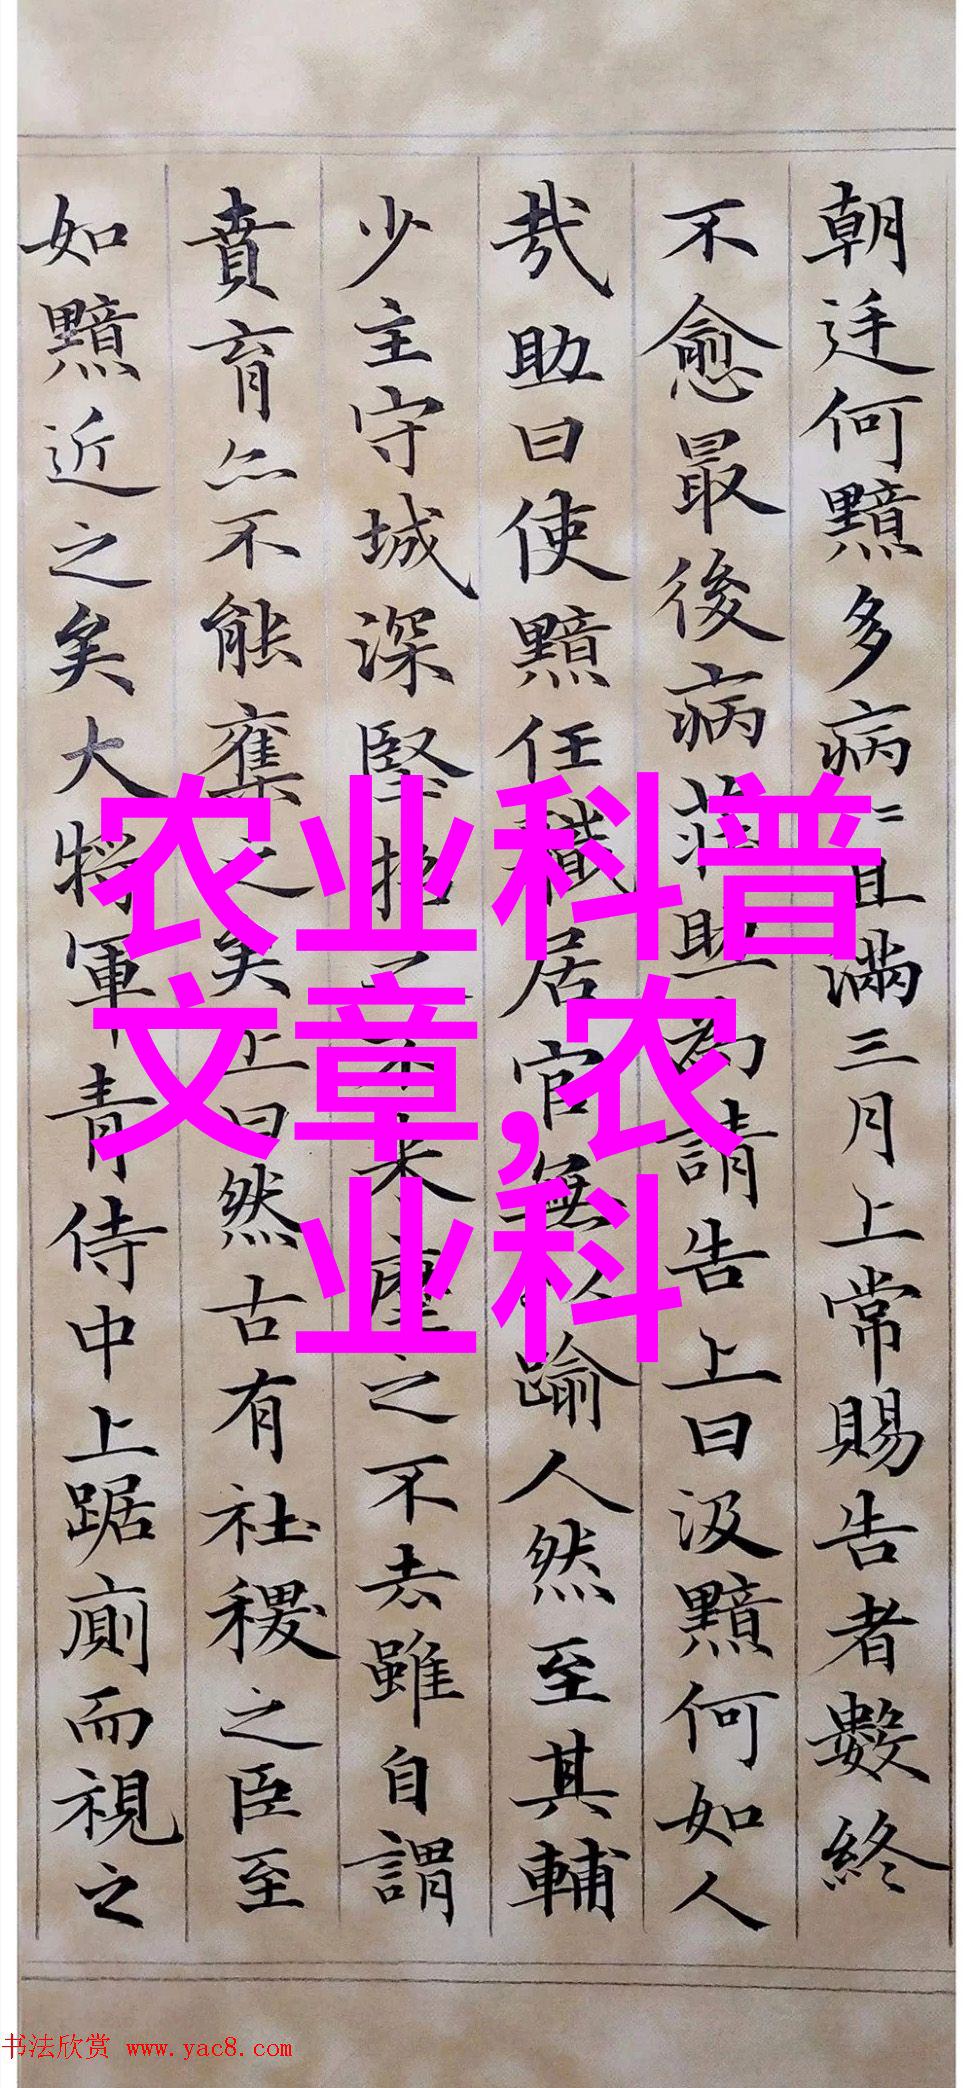 朝廷何黯多病〻且滿三月上常賜告者數終
不愈最後病莊助為請告上曰汲黯何如人
哉助曰使黯任職居官無以踰人然至其輔
少主守城深堅招之不來麾之不去雖自謂
賁育亦不能奪之矣上曰然古有社稷之臣至
如黯近之矣大將軍青侍中上踞廁而視之
农业科普
文章,农
业科
书法欣赏 www.yac8.com